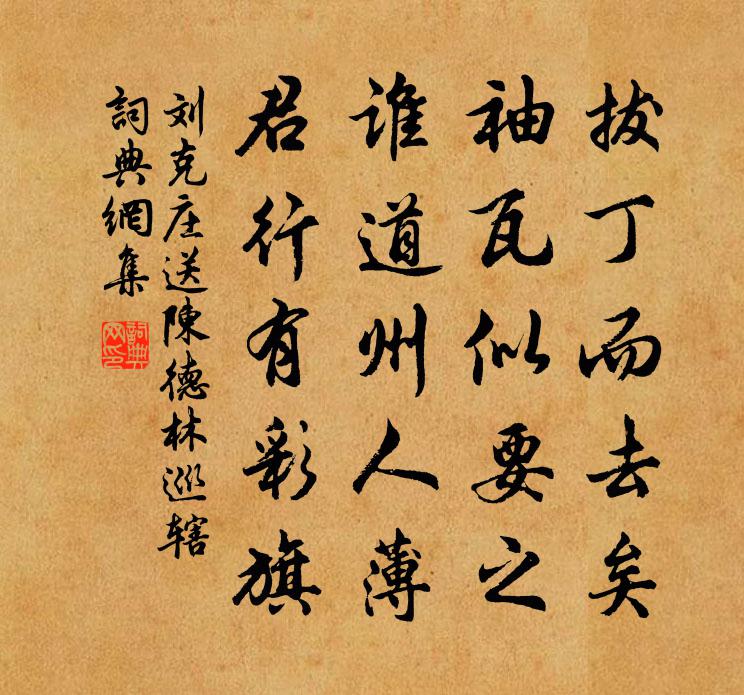 拔丁而去矣
袖瓦似要之
谁道州人薄
君行有彩旗
刘克庄送陳德林巡辖
詞典網集
詞典网印